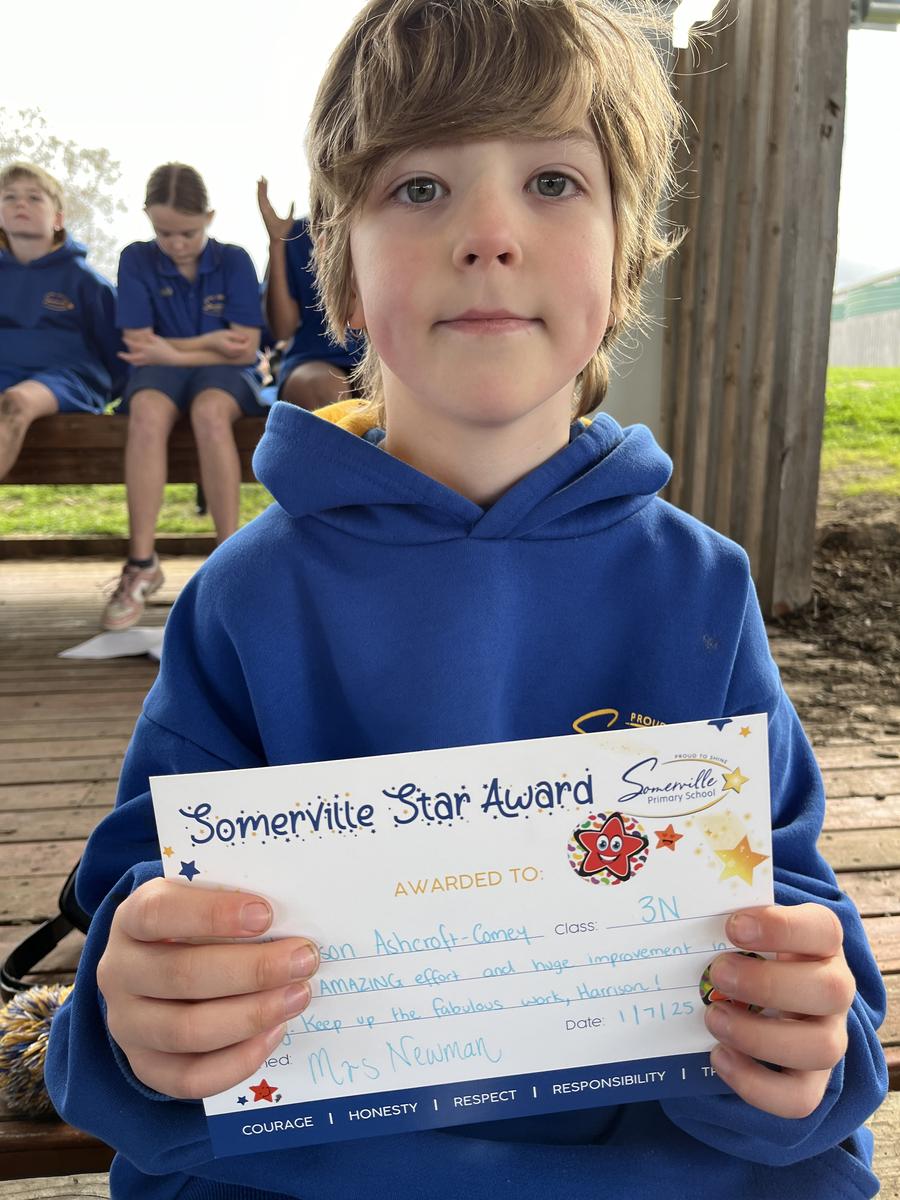 PROUD
Somerville Star Award
PROUD TO SHINE
Somerville
Primary School
AWARDED TO:
son Ashcroft-Comey Class: 3N
AMAZING effort and huge improvement in
Keep up the fabulous work, Harrison!
Mrs Newman Date: 1/7/25
COURAGE | HONESTY | RESPECT | RESPONSIBILITY |